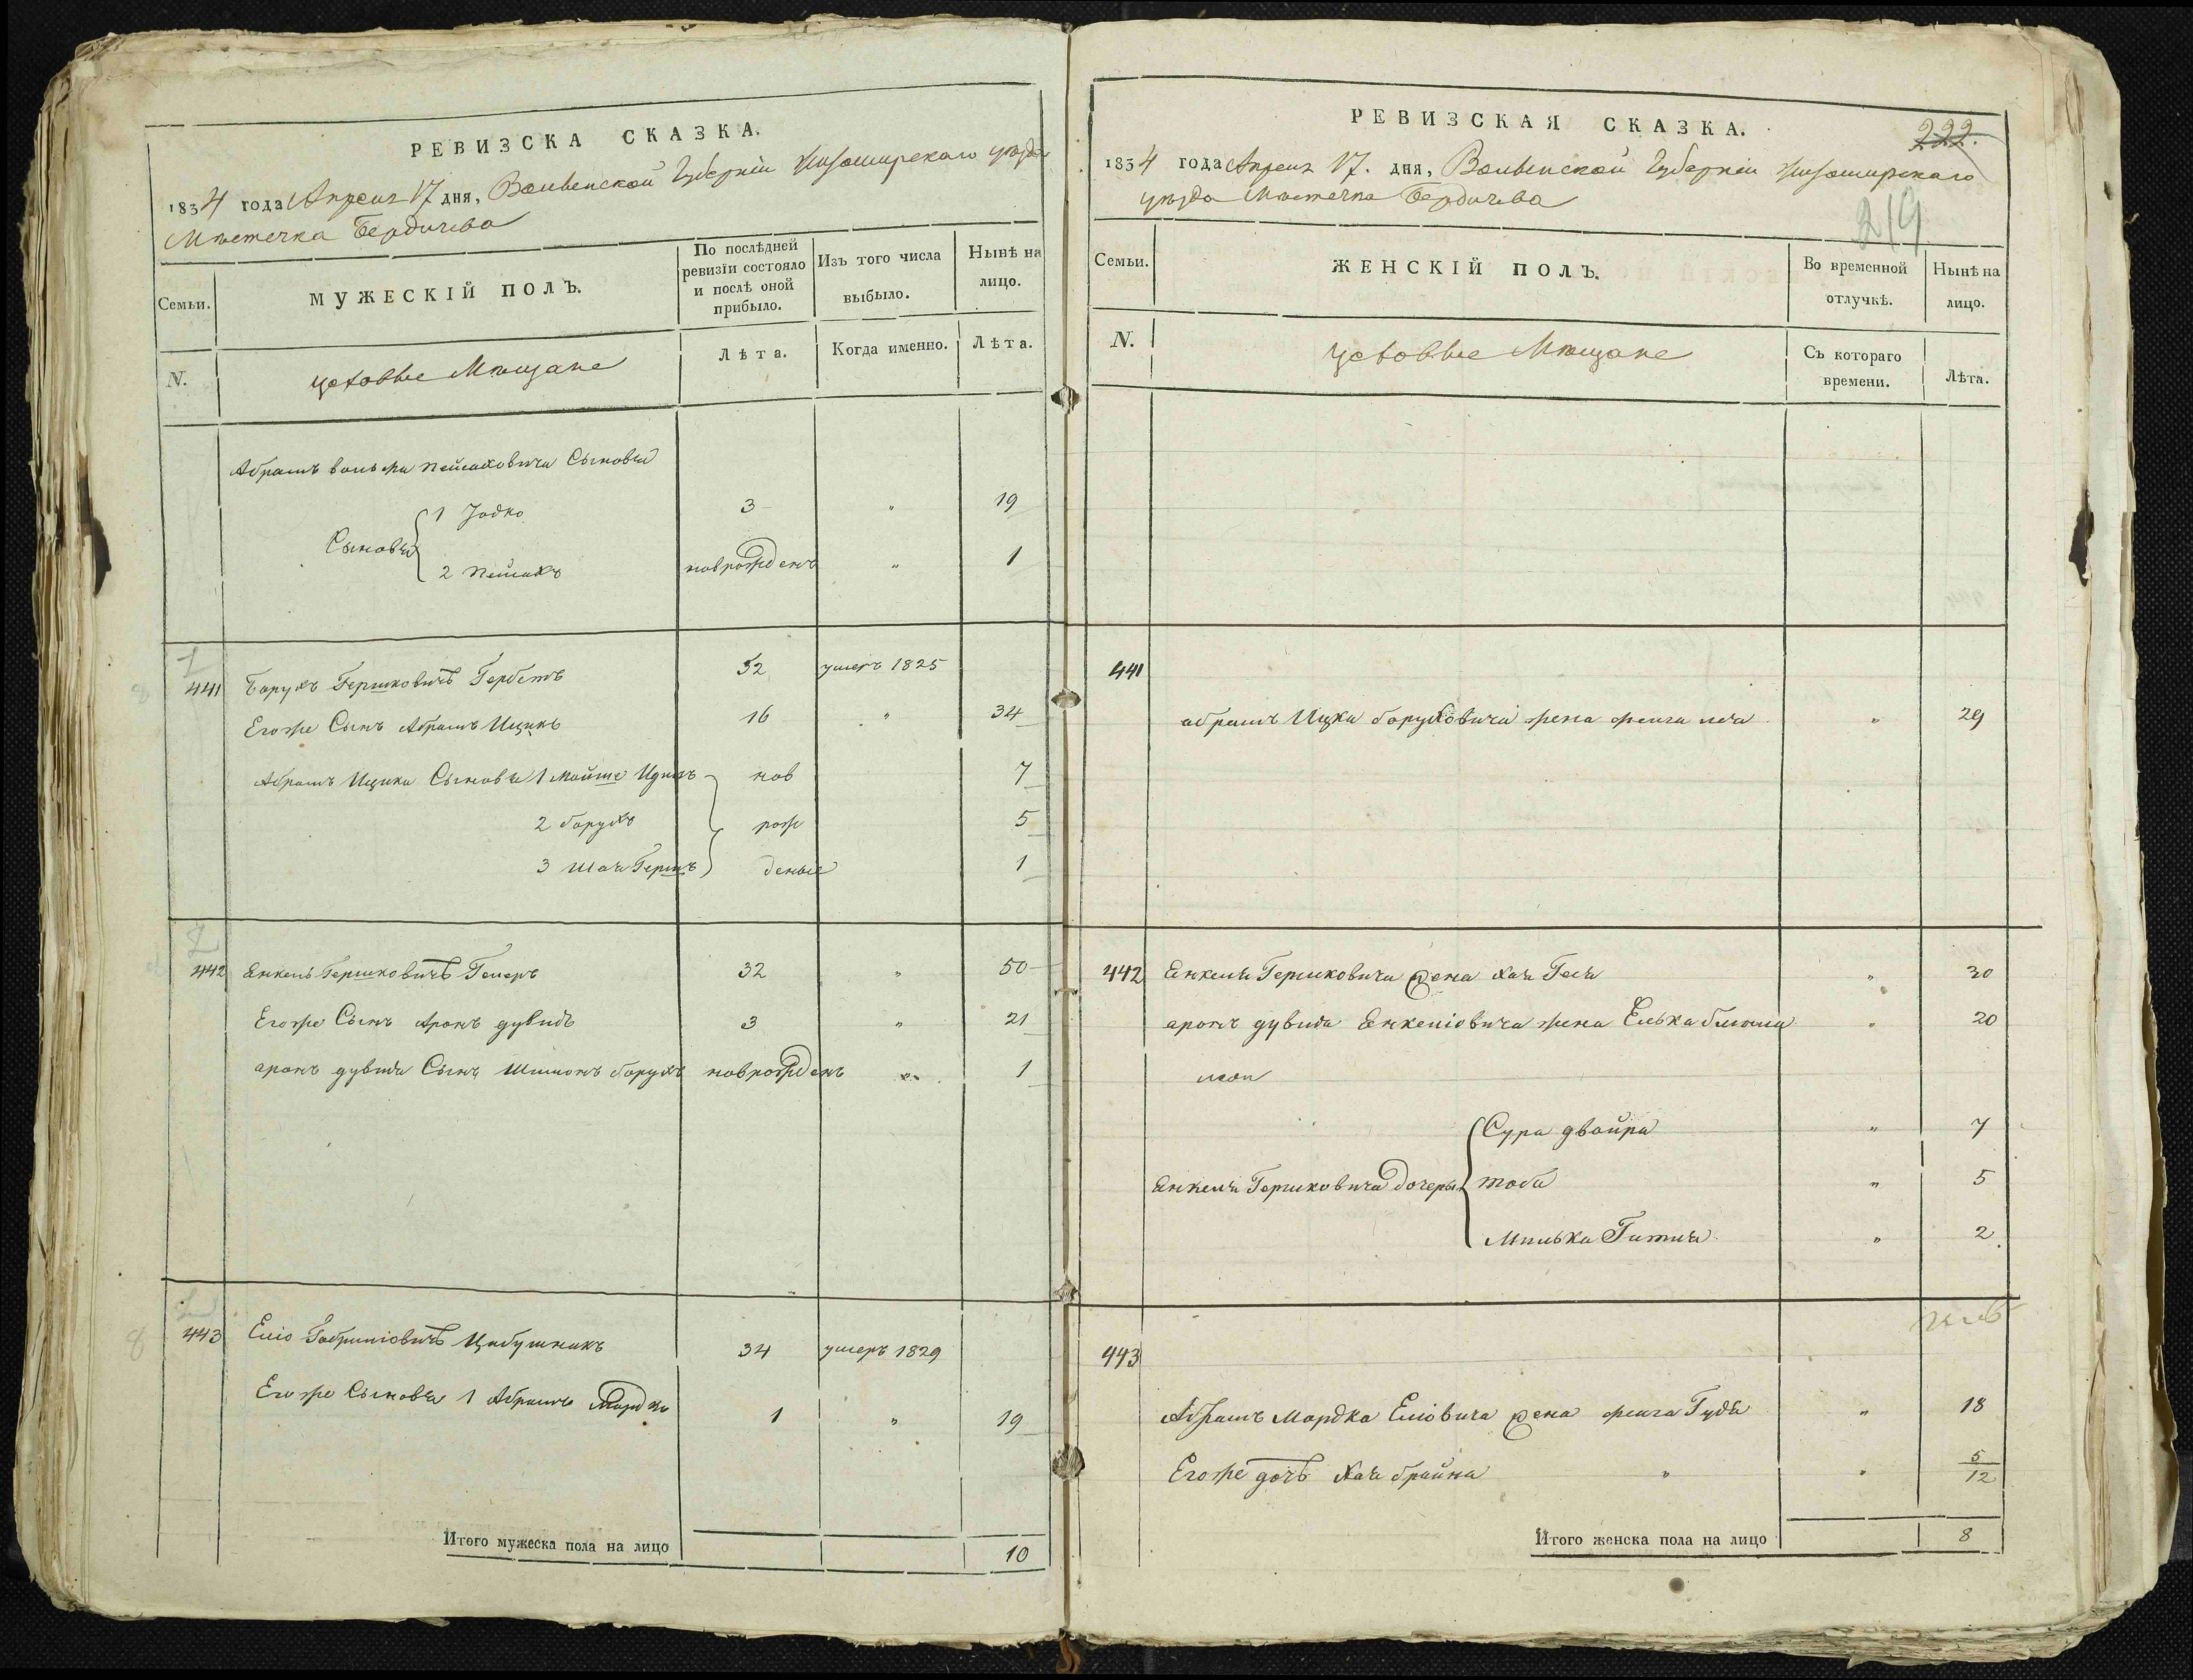 РЕВИЗСКА СКАЗКА.
1834 года Апреля 17 дня, Волынской Губерніи Житомирскаго уезда
Местечка Бердичева
Семьи.
МУЖЕСКІЙ ПОЛЪ.
По послѣдней ревизіи состояло и послѣ оной прибыло.
Изъ того числа выбыло.
Нынѣ на лицо.
N.
Мещане
Лѣта.
Когда именно.
Лѣта.
Абрамъ Вольфа Пейсаховича Сыновья
1 Йодко 3 " 19
Сыновья
2 Пейсахъ новрожденъ " 1
441 Барухъ Гершковичъ 32 умеръ 1825
Егоже Сынъ Абрамъ Ицикъ 16 " 34
Абрамъ Ицика Сыновья 1 Мойше нов 7
2 Борухъ рож 5
3 Шая Гершъ деные 1
442 Янкель Гершковичъ Гелеръ 32 " 50
Егоже Сынъ Аронъ Дувидъ 3 " 21
Аронъ Дувида Сынъ Шимонъ Борухъ новрожденъ " 1
443 Еліо Габриліовичъ Цибульникъ 34 умеръ 1829
Егоже Сыновья 1 Абрамъ Мордко 1 " 19
Итого мужеска пола на лицо 10
РЕВИЗСКАЯ СКАЗКА.
222.
1834 года Апреля 17. дня, Волынской Губерніи Житомирскаго
уезда Местечка Бердичева
219
Семьи.
ЖЕНСКІЙ ПОЛЪ.
Во временной отлучкѣ.
Нынѣ на лицо.
N.
Мещане
Съ котораго времени.
Лѣта.
441
Абрамъ Ицка Боруховича жена Фейга Лея " 29
442 Янкеля Гершковича жена Хая Геся " 30
Аронъ Дувида Янкеліовича жена Елька Блюма " 20
Сура Двойра " 7
Янкеля Гершковича дочеры Тоба " 5
Милька Гитля " 2
443
Абрамъ Мордка Еліовича жена Фейга Гудя " 18
Егоже дочь Хая Брайна " " 5/12
Итого женска пола на лицо 8